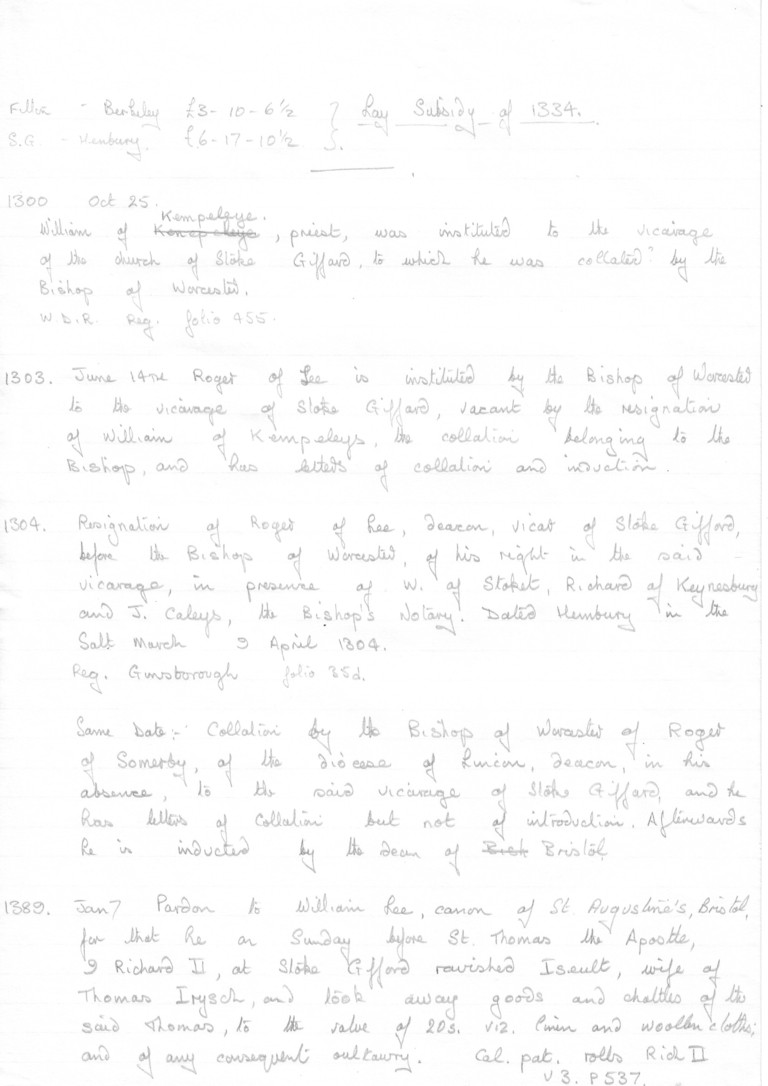 Filton - Berkeley £3-10-6½ } Lay Subsidy of 1334.
S.G. - Henbury. £6-17-10½
1300 Oct 25.
Kempeleye.
William of Konepeleye, priest, was instituted to the vicarage
of the church of Stoke Giffard, to which he was collated? by the
Bishop of Worcester.
W D.R. Reg. folio 455.
1303. June 14th Roger of Lee is instituted by the Bishop of Worcester
to the vicarage of Stoke Giffard, vacant by the resignation
of William of Kempeleys, the collation belonging to the
Bishop, and has letters of collation and induction.
1304. Resignation of Roger of Lee, deacon, vicar of Stoke Gifford,
before the Bishop of Worcester, of his right in the said
vicarage, in presence of W. of Stoket, Richard of Keynesbury
and J. Caleys, the Bishop's Notary. Dated Hembury in the
Salt March 9 April 1304.
Reg. Ginsborough folio 35d.
Same Date:- Collation by the Bishop of Worcester of Roger
of Somerby, of the diocese of Lincon, deacon, in his
absence, to the said vicarage of Stoke Giffard, and he
has letters of Collation but not of introduction. Afterwards
he is inducted by the dean of Bisk Bristol,
1389. Jan 7 Pardon to William Lee, canon of St. Augustine's, Bristol,
for that he on Sunday before St. Thomas the Apostle,
9 Richard II, at Stoke Gifford ravished Iseult, wife of
Thomas Irysch, and took away goods and chattles of the
said Thomas, to the value of 20s. viz. linin and woollen clothes;
and of any consequent outlawry. Cal. pat. rolls Rich II
v 3. P 537.